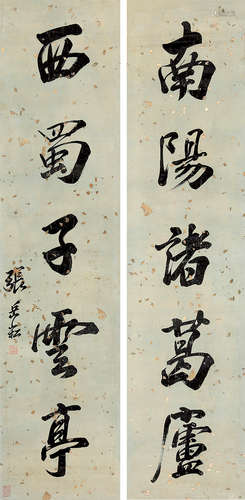 南陽諸葛廬
西蜀子雲亭
張岳崧